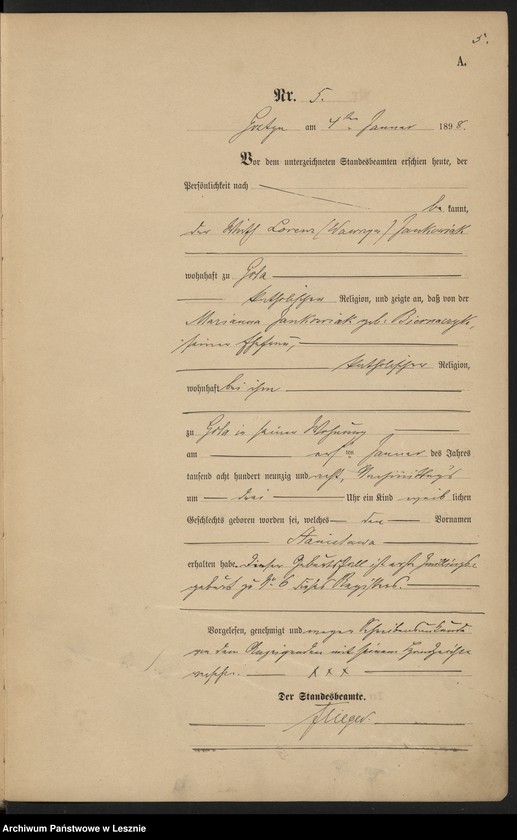 5.
A.
Nr. 5.
am 4ten Januar 1898.
Vor dem unterzeichneten Standesbeamten erschien heute, der
Persönlichkeit nach
be kannt,
der Wirth Lorenz (Wawrzyn) Jankowiak
wohnhaft zu Gola
katholischer Religion, und zeigte an, daß von der
Marianna Jankowiak geb. Biernaczyk,
seiner Ehefrau,
katholischer Religion,
wohnhaft bei ihm
zu Gola in seiner Wohnung
am ten Januar des Jahres
tausend acht hundert neunzig und acht, Nachmittags
um drei Uhr ein Kind weib lichen
Geschlechts geboren worden sei, welches den Vornamen
Stanislawa
erhalten habe. Dieser Geburtsfall ist erste Zwillings-
geburt zu No 6 dieses Registers.
Vorgelesen, genehmigt und wegen Schreibensunkunde
von dem Anzeigenden mit seinem Handzeichen
versehen. x x x
Der Standesbeamte.
Archiwum Państwowe w Lesznie